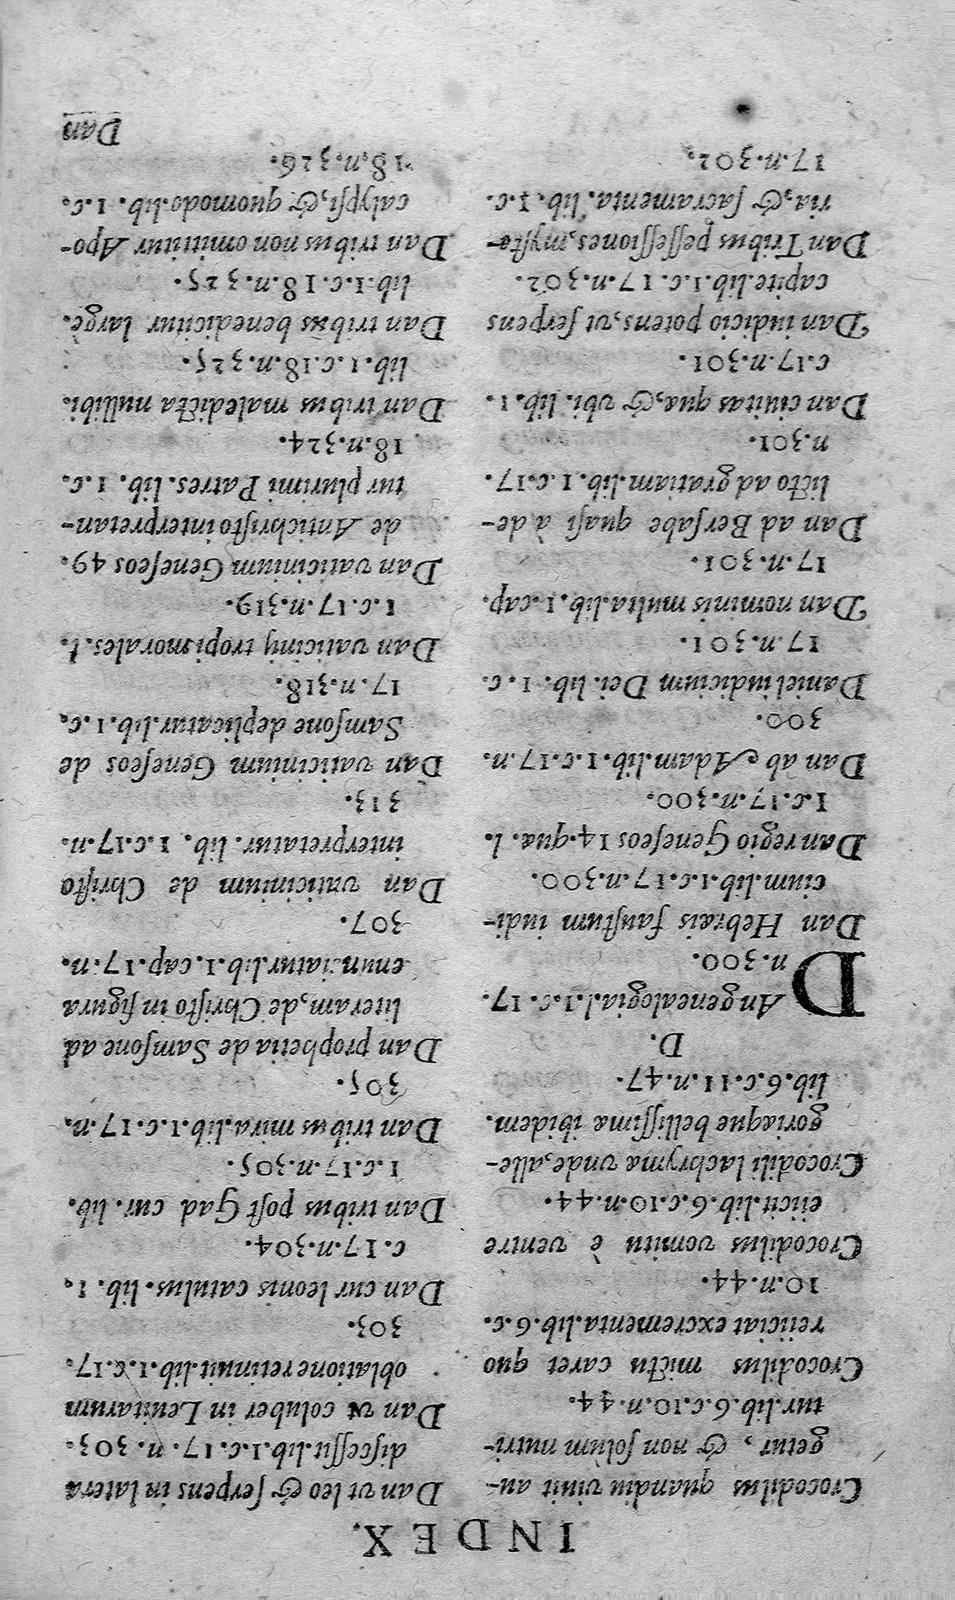 INDEX.
Crocodilus quandiu viuit au-
getur, & non ſolum nutri-
tur.lib.6.c.10.n.44.
Crocodilus mictu caret quo
reiiciat excrementa.lib.6.c.
10.n.44.
Crocodilus vomitu è ventre
eiicit.lib.6.c.10.n.44.
Crocodili lachrymæ vnde,alle-
goriæque belliſſimæ ibidem.
lib.6.c.11.n.47.
D.
DAn genealogia.l.1.c.17.
n.300.
Dan Hebræis fauſtum iudi-
cium.lib.1.c.17.n.300.
Dan regio Geneſeos 14.qua. l.
1.c.17.n.300.
Dan ab Adam.lib.1.c.17.n.
300.
Daniel iudicium Dei.lib. 1.c.
17.n.301.
Dan nominis multa.lib.1.cap.
17.n.301.
Dan ad Berſabe quaſi à de-
licto ad gratiam.lib.1.c.17.
n.301.
Dan ciuitas qua,& vbi. lib.1.
c.17.n.301.
Dan iudicio potens,vt ſerpens
capite.lib.1.c.17.n.302.
Dan Tribus poſſeſſiones,myſte-
ria,& ſacramenta. lib.1.c.
17.n.302.
Dan vt leo & ſerpens in latera
diſceſſit.lib.1.c.17.n.303.
Dan vt coluber in Leuitarum
oblatione retinuit.lib.1.c.17.
303.
Dan cur leonis catulus. lib. 1.
c.17.n.304.
Dan tribus poſt Gad cur. lib.
1.c.17.n.305.
Dan tribus mira.lib.1.c.17.n.
305.
Dan prophetia de Samſone ad
literam,de Chriſto in figura
enunciatur.lib.1.cap.17.n.
307.
Dan vaticinium de Chriſto
interpretatur. lib. 1 c.17.n.
313.
Dan vaticinium Geneſeos de
Samſone deplicatur.lib.1.c.
17.n.318.
Dan vaticinij tropi morales. l.
1.c.17.n.319.
Dan vaticinium Geneſeos 49.
de Antichriſto interpretan-
tur plurimi Patres. lib. 1.c.
18.n.324.
Dan tribus maledicta nullibi.
lib.1.c.18.n.325.
Dan tribus benedicitur largè.
lib.1.c.18.n.325.
Dan tribus non omittitur Apo-
calypſi,& quomodo.lib. 1.c.
18.n.326.
Dan